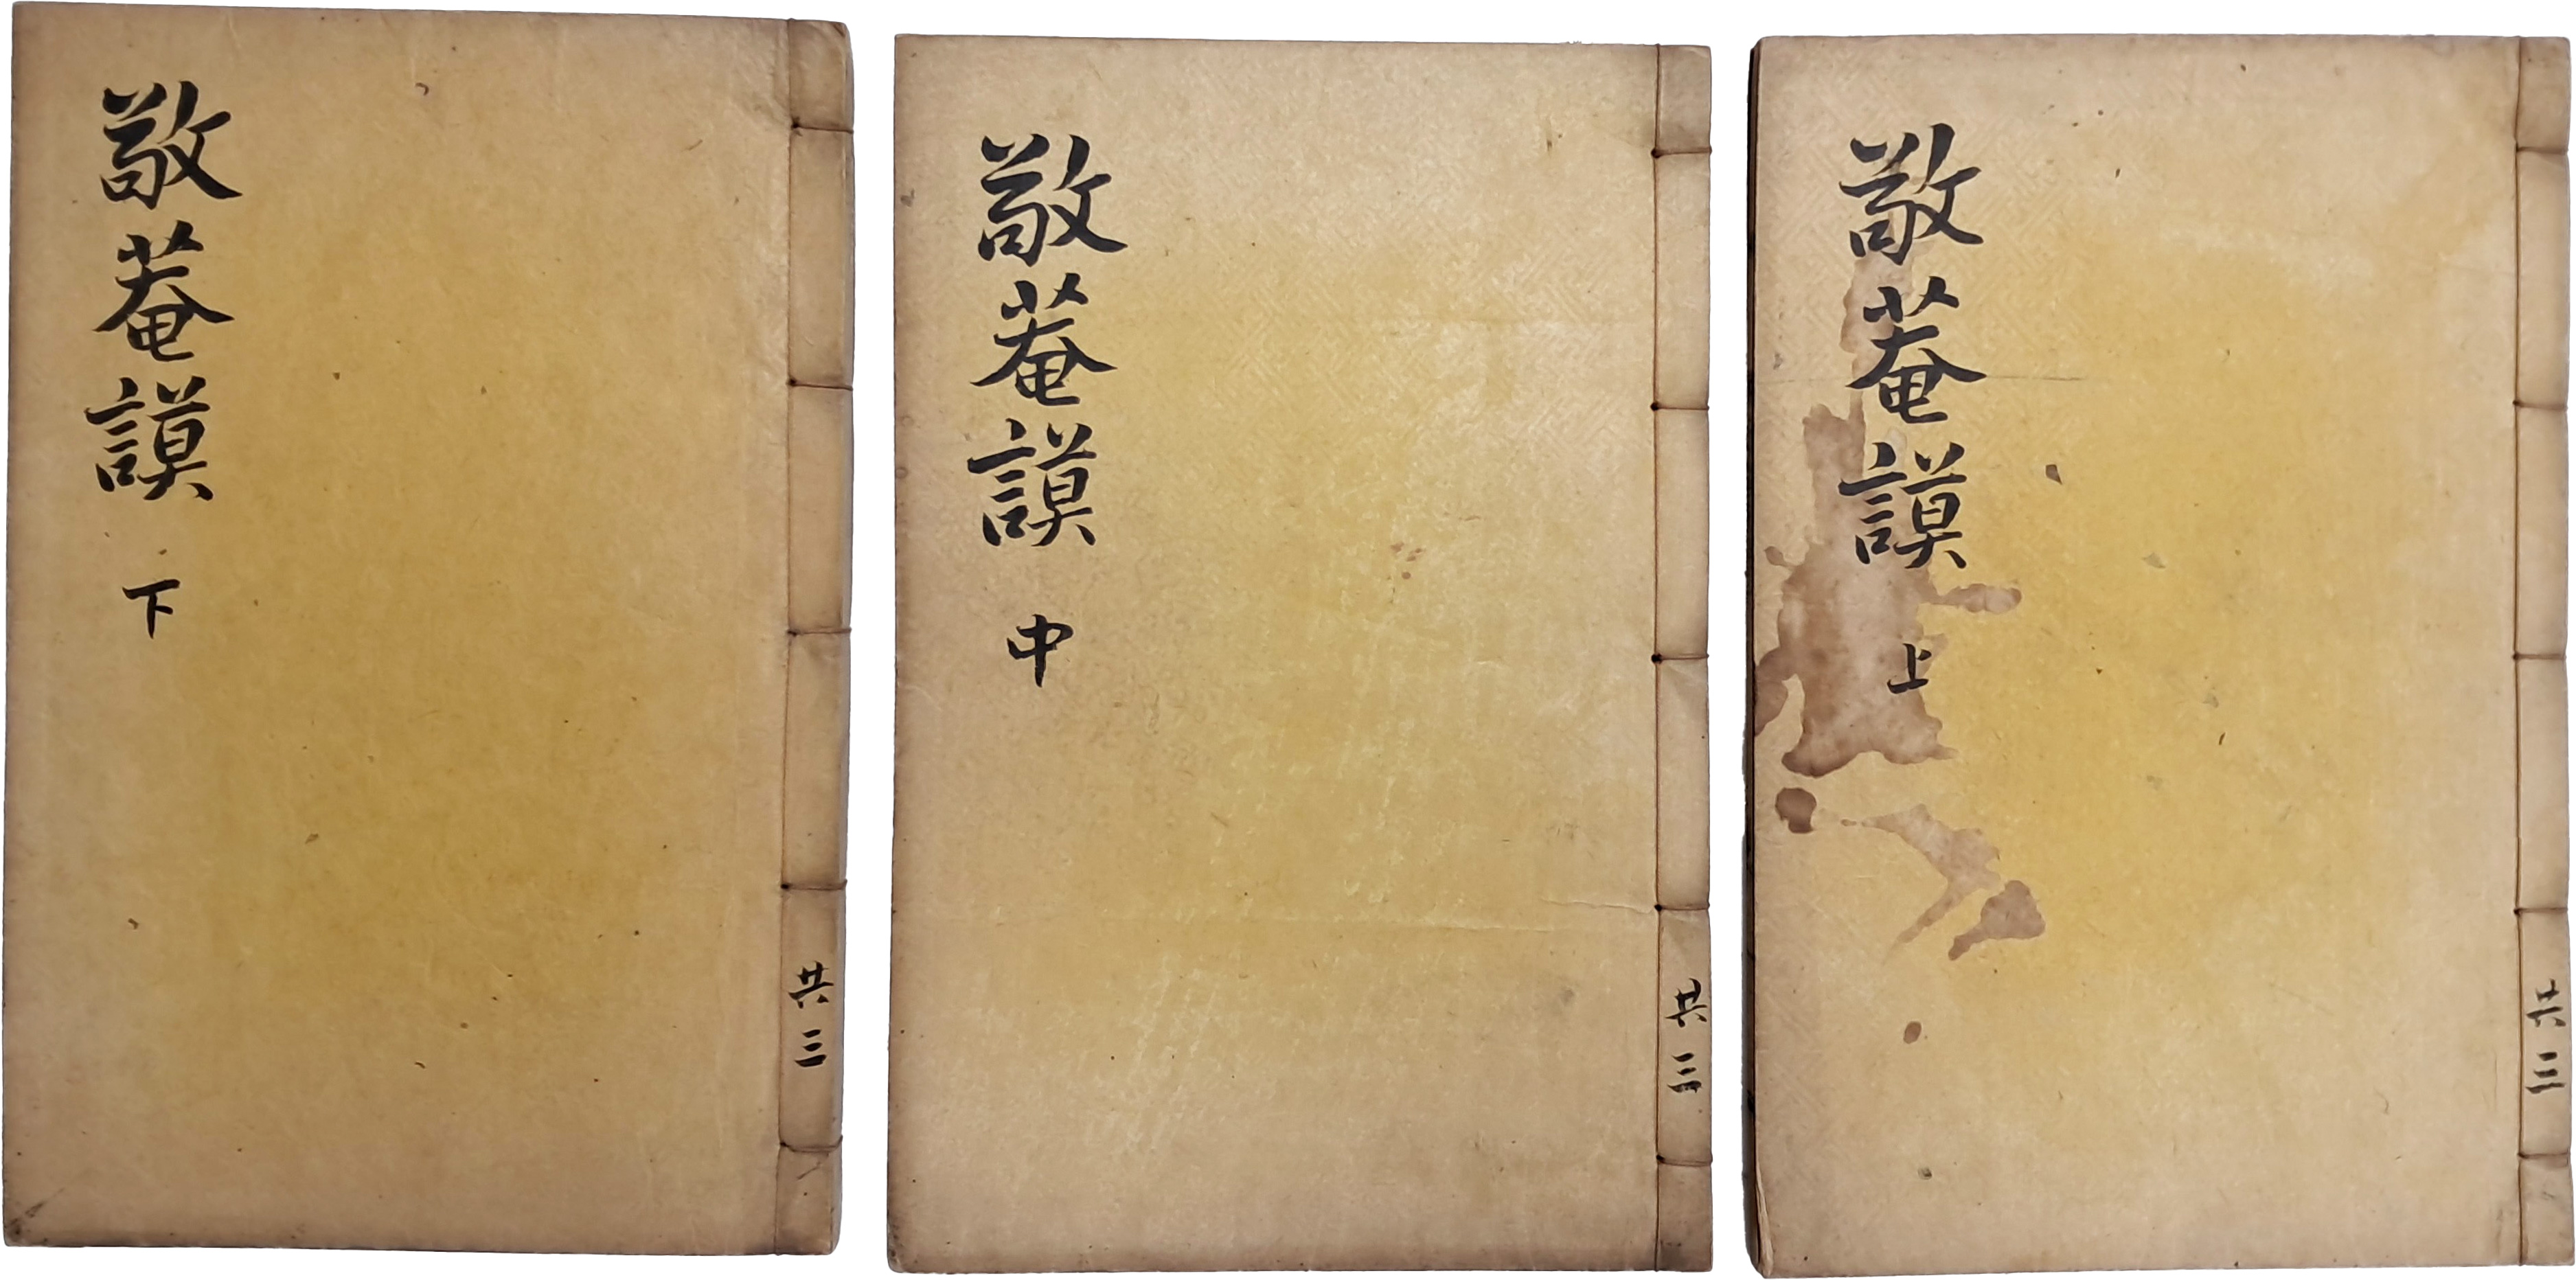 敬菴謨 上
共三
敬菴謨 中
共三
敬菴謨 下
共三